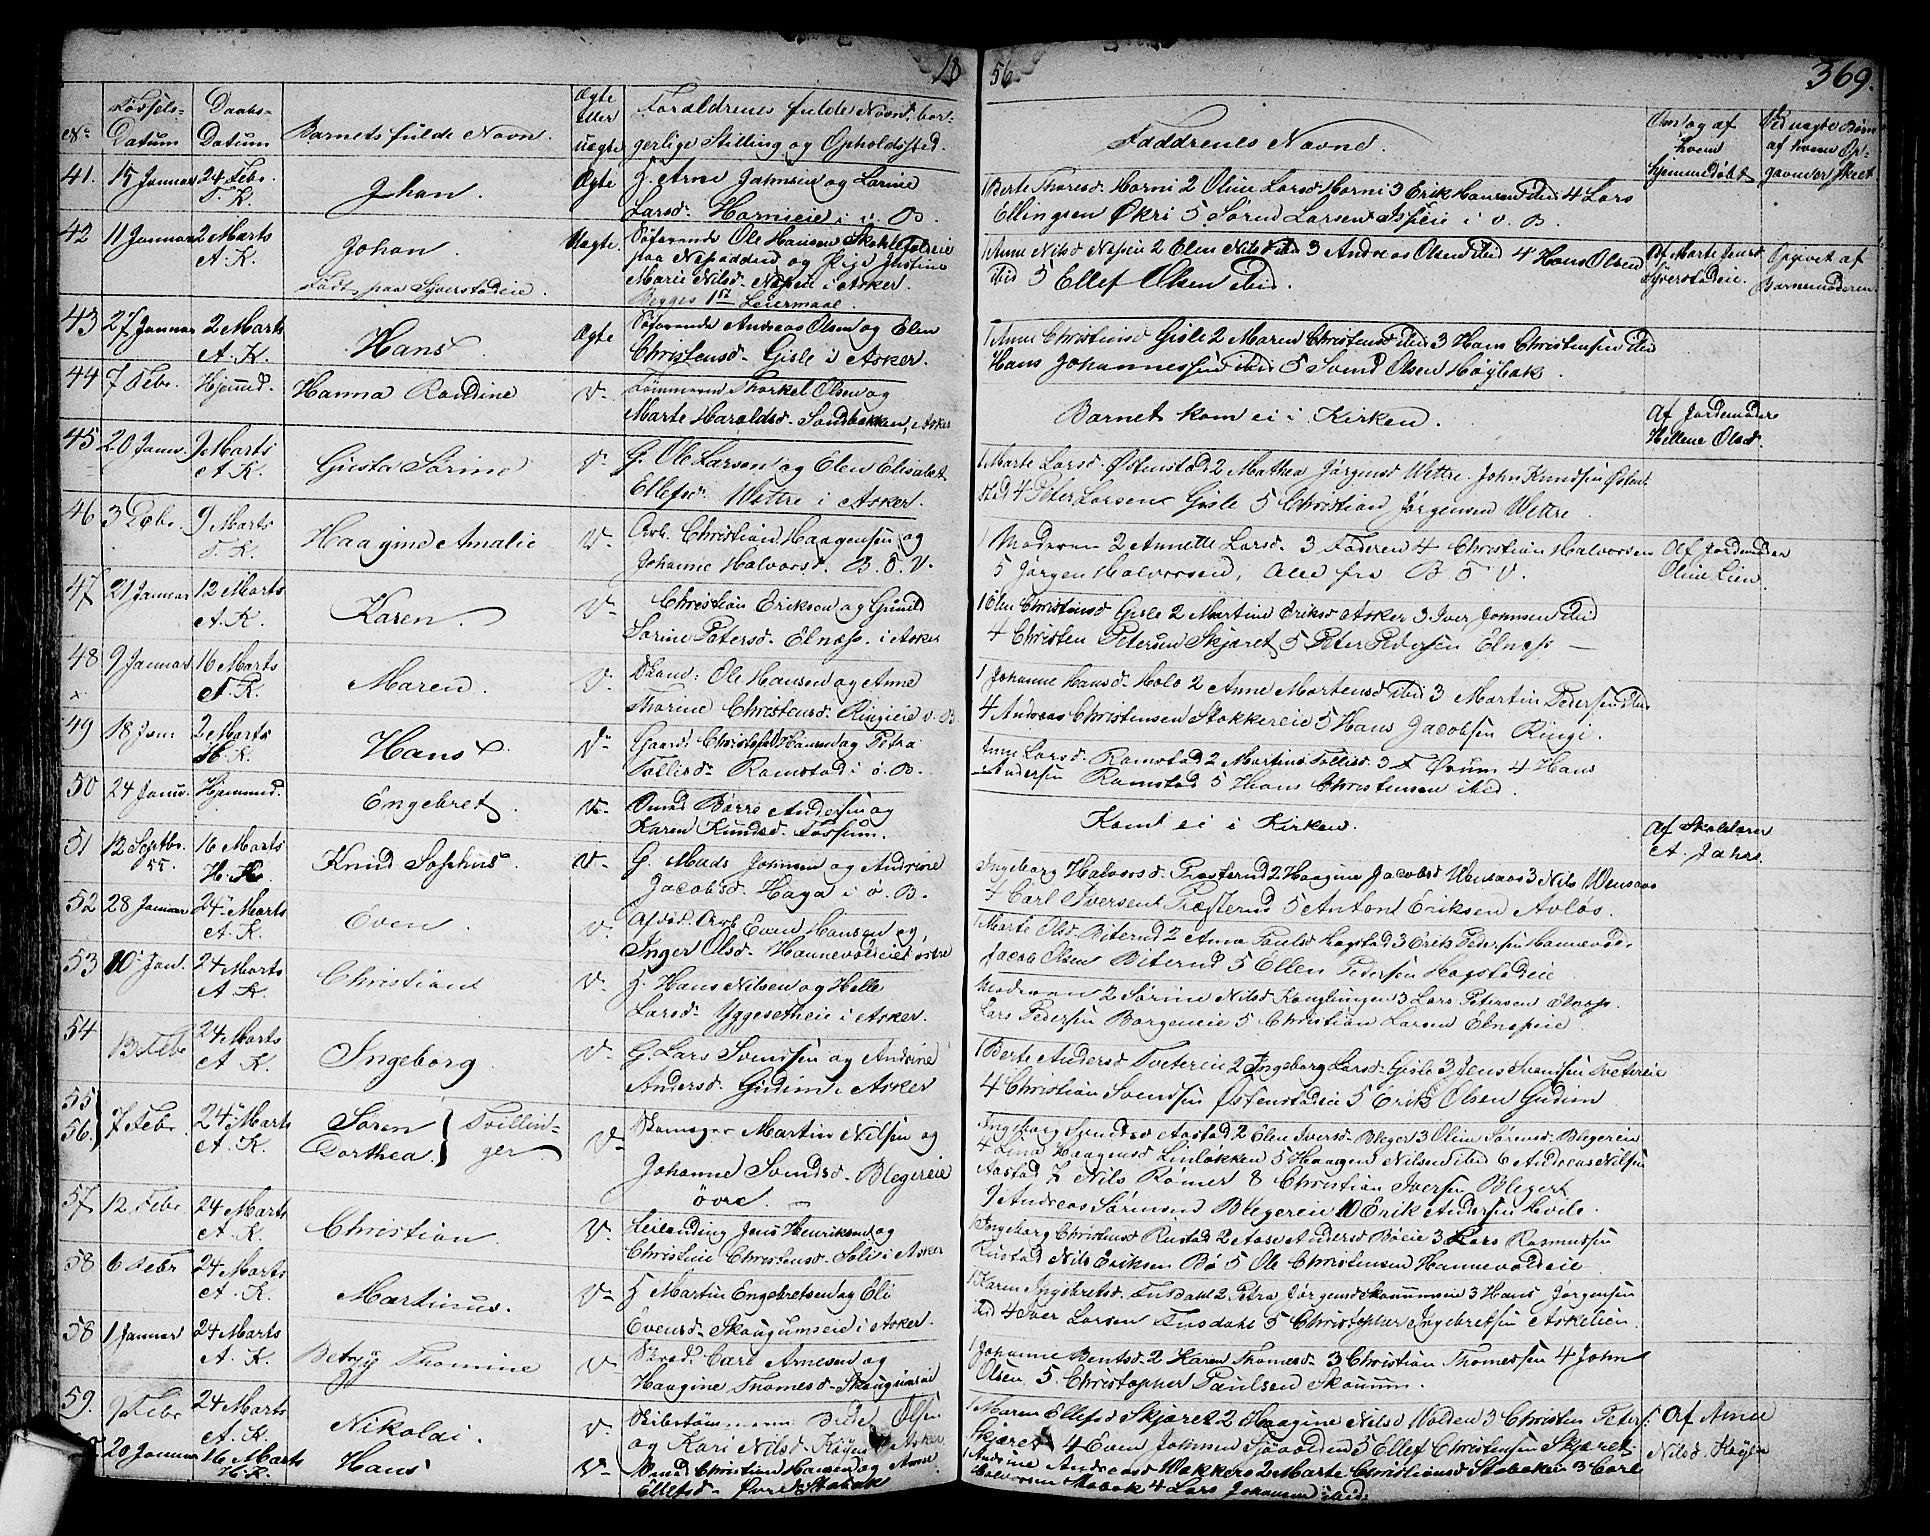 18 56 369.
No. Fødsels-Datum Daabs-Datum Barnets fulde Navn. Ægte eller uægte Forældrenes fulde Navn, borgerlige Stilling og Opholdsted. Faddrenes Navne. Om og af hvem hjemmedøbt Ved uægte Børn af hvem Opgaven er skeet
41. 15 Januar 24 Febr. T. K. Johan Ægte G. Arne Jahnsen og Larine
Larsd. Hornieie i v. B.
1 Berte Thoresd. Horni 2 Oline Larsd. Horni 3 Erik Hansen ibid 4 Lars
Ellingsen Økri 5 Søren Larsen i v. B.
42 11 Januar 2 Marts A. K. Johan. Uægte. Søfarende Ole Hansen
Født paa Syverstadeie. paa Nesodden og Pige Justine
Marie Nilsd. Nesøen i Asker.
Begges 1st Leiermaal.
1 Anne Nilsd Nesøen 2 Elen Nilsd ibid 3 Andreas Olsen ibid 4 Hans Olsen
ibid 5 Ellef Olsen ibid.
Af Marte Jensd Syverstadeie. Opgivet af Barnemoderen
43 27 Januar 2 Marts A. K. Hans Ægte Søfarende Andreas Olsen og Elen
Christensd. Gisle i Asker.
1 Anne Christensd Gisle 2 Maren Christensd ibid 3 Hans Christensen ibid
Hans Johannessen ibid 5 Svend Olsen Høybak.
44 7 Febr. Hjemmed. Hanna Randine v. Tømmerm Thorkel Olsen og
Marte Haraldsd. Sandbakken, i Asker
Barnet kom ei i Kirken. Af Jordemoder
Hellene Olsd.
45 20 Janu. 9 Marts A. K. Gusta Sørine v G. Ole Larsen og Elen Elisabet
Ellefsd. Wettre i Asker.
1 Marte Larsd. Østenstad 2 Mathea Jørgensd Wettre. John Knudsen Østenstad
4 Peter Larsen Gisle 5 Christian Jørgensen Wettre
46 3 Febr. 9 Marts T. K. Haagine Amalie v. Arb. Christian Haagensen og
Johanne Halvorsd. B. S. V.
1 Moderen 2 Annette Larsd. 3 Faderen 4 Christian Halvorsen
5 Jørgen Halvorsen, Alle fra B S V.
Af Jordmoder Oline Lien
47 21 Januar 12 Marts A. K. Karen. v. Christian Eriksen og Gunild
Sorine Petersd. Elnæss. i Asker
1 Elen Christensd Gisle 2 Martine Eriksd Asker 3 Iver Johnsen ibid
4 Christen Petersen Skjæret 5 Peter Pedersen Elnæss
48 9 Januar 16 Marts A. K. Maren. v. Ole Hansen og Anne
Thorine Christensd. Ringieie v. B
1 Johanne Hansd. Holo 2 Anne Mortensd ibid 3 Martin Pedersen ibid
4 Andreas Christensen Stokkereie 5 Hans Jacobsen Ringi.
49 18 Jan 2 Marts H. K. Hans v. Gaard. Christopher Hansen og Petra
Tollefsd. Ramstad i ø. B.
Anne Larsd. Ramstad 2 Martine Tollefsd. 3 4 Hans
Andersen Ramstad 5 Hans Christensen ibid.
50 24 Janu. Hjemmed. Engebret v. Børre Andersen og
Karen Knudsd. Fossum.
Komt ei i Kirken. Af Skolelærer
A. Jahre
51 12 Septbr. 55. 16 Marts H. K. Knud Sophus v. G. Mads Johnsen og Andrine
Jacobsd. Haga i ø. B.
Ingeborg Halvorsd. Præsterud 2 Haagine Jacobsd Wensaas 3 Nils Wensaas
4 Carl Iversen Præsterud 5 Anton Eriksen Avløs.
52 28 Januar 24 Marts A. K. Even. v. Arb. Even Hansen og
Inger Olsd. Hannevoldeiet østre
1 Marte Olsd. Biterud 2 Anna Paulsd Hogstad 3 Erik Pedersen Hannevold.
Jacob Olsen Biterud 5 Ellen Petersen Hogstadeie
53 10 Jan. 24 Marts A K. Christian v. H. Hans Nilsen og Helle
Larsd. Yggesetheie i Asker.
Moderen 2 Sørine Nilsd Konglungen 3 Lars Petersen Elnæss.
Lars Pedersen Borgeneie 5 Christian Larsen Elneseie
54 13 Febr 24 Marts A K. Ingeborg v. G. Lars Svendsen og Andrine
Andersd. Gudim i Asker
1 Berte Andersd Tvetereie 2 Ingeborg Larsd. Gisle 3 Jens Tvetereie
4 Christian Svendsen Østenstadeie 5 Erik Olsen Gudim
55 56. 7 Febr. 24 Marts A. K. Søren Dorthea. Tvillinger v. Martin Nilsen og
Johanne Svendsd. Blegereie
øvre.
Ingeborg Aastad 2 Elen Iversd. Bleger 3 Oline Sørensd. Blegereie
4 Lina Haagensd Linløkken 5 Haagen Nilsen ibid 6 Andreas Nilsen
Aastad 7 Nils Romer 8 Christian Iversen Bleger
9 Andreas Sørensen Blegereie 10 Erik Andersen Hvile.
57 12 Febr 24 Marts A. K. Christian v. Leilending Jens Henriksen og
Christine Christensd. Soli i Asker
Ingeborg Christensd Rustad 2 Aase Andersd Bøeie 3 Lars Rasmussen
Rustad Nils Eriksen Bø 5 Ole Christensen Hannevoldeie
58 6 Febr 24 Marts A. K. Martinus. v. H Martin Engebretsen og Eli
Evensd. Skougumseie i Asker.
1 Karen Ingebretsd. Fusdahl 2 Petra Jørgensd Skoumseie 3 Hans Jørgensen
ibid 4 Iver Larsen Fusdahl 5 Christopher Ingebretsen Askelien
58 1 Januar 24 Marts A. K. Betzy Thomine v Carl Arnesen og
Haagine Thomesd. Skougumseie
1 Johanne Bentsd. 2 Karen Thomesd. 3 Christian Thomessen 4 John
Olsen 5. Christopher Paulsen Skoum.
59. 7 Febr 24 Marts A. K. Nikolai. v. Skibstømmerm Peder Olsen
og Kari Nilsd. Køyen i Asker
1 Maren Ellefsd Skjæret 2 Haagine Nilsd Wolden 3 Christen Peters
Skjæret 4 Even Johnsen 5 Ellef Christensen Skjæret.
Af Anne Nilsd. Køyen
20 Januar 16 Marts H. K. Hans v. Christian Hansen og Anne
Ellefsd. Stabæk
1 Andrine Andreasd Wakkerø 2 Marte Christiansd Stabæk 3 Carl
Halvorsen Stabæk 4 Lars Johansen ibid.